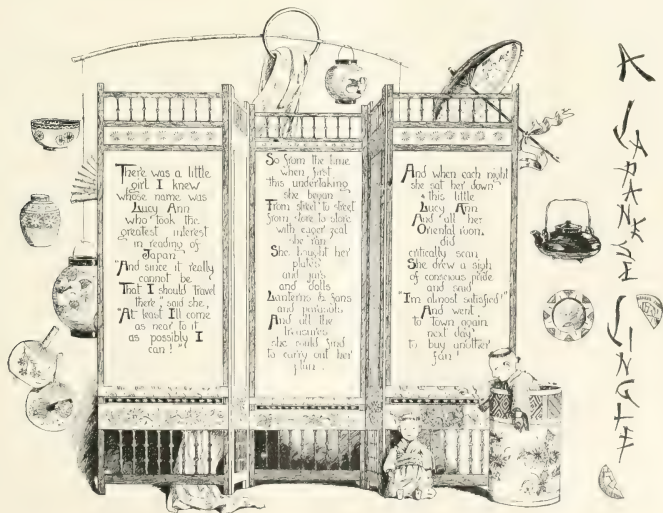 A JAPANESE JINGLE
There was a little
girl I knew
whose name was
Lucy Ann
who took the
greatest interest
in reading of
Japan
"And since it really
cannot be
That I should travel
there", said she,
"At least I'll come
as near to it
as possibly I
can!"
So from the time
when first
this undertaking
she begun
From street to street
from store to store
with eager zeal
she ran
She bought her
plates
and jars
and dolls
Lanterns & fans
and parasols
And all the
treasures
she could find
to carry out her
plan.
And when each night
she sat her down
this little
Lucy Ann
And all her
Oriental room,
did
critically scan,
She drew a sigh
of conscious pride
and said
"I'm almost satisfied!"
And went
to town again
next day
to buy another
fan!